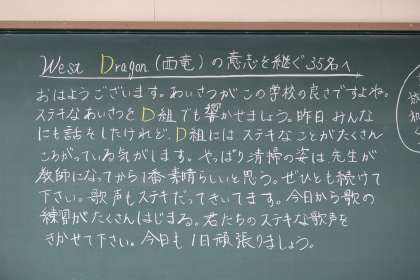 West Dragon (西竜) の意志を継ぐ35名へ
おはようございます。あいさつがこの学校の良さですよね。
ステキなあいさつをD組でも響かせましょう。昨日、みんな
にも話をしたけれど、D組にはステキなことがたくさん
ころがっている気がします。やっぱり清掃の姿は先生が
教師になってから1番素晴らしいと思う。ぜひとも続けて
下さい。歌声もステキだってきいてます。今日から歌の
練習がたくさんはじまる。君たちのステキな歌声を
きかせて下さい。今日も1日頑張りましょう。